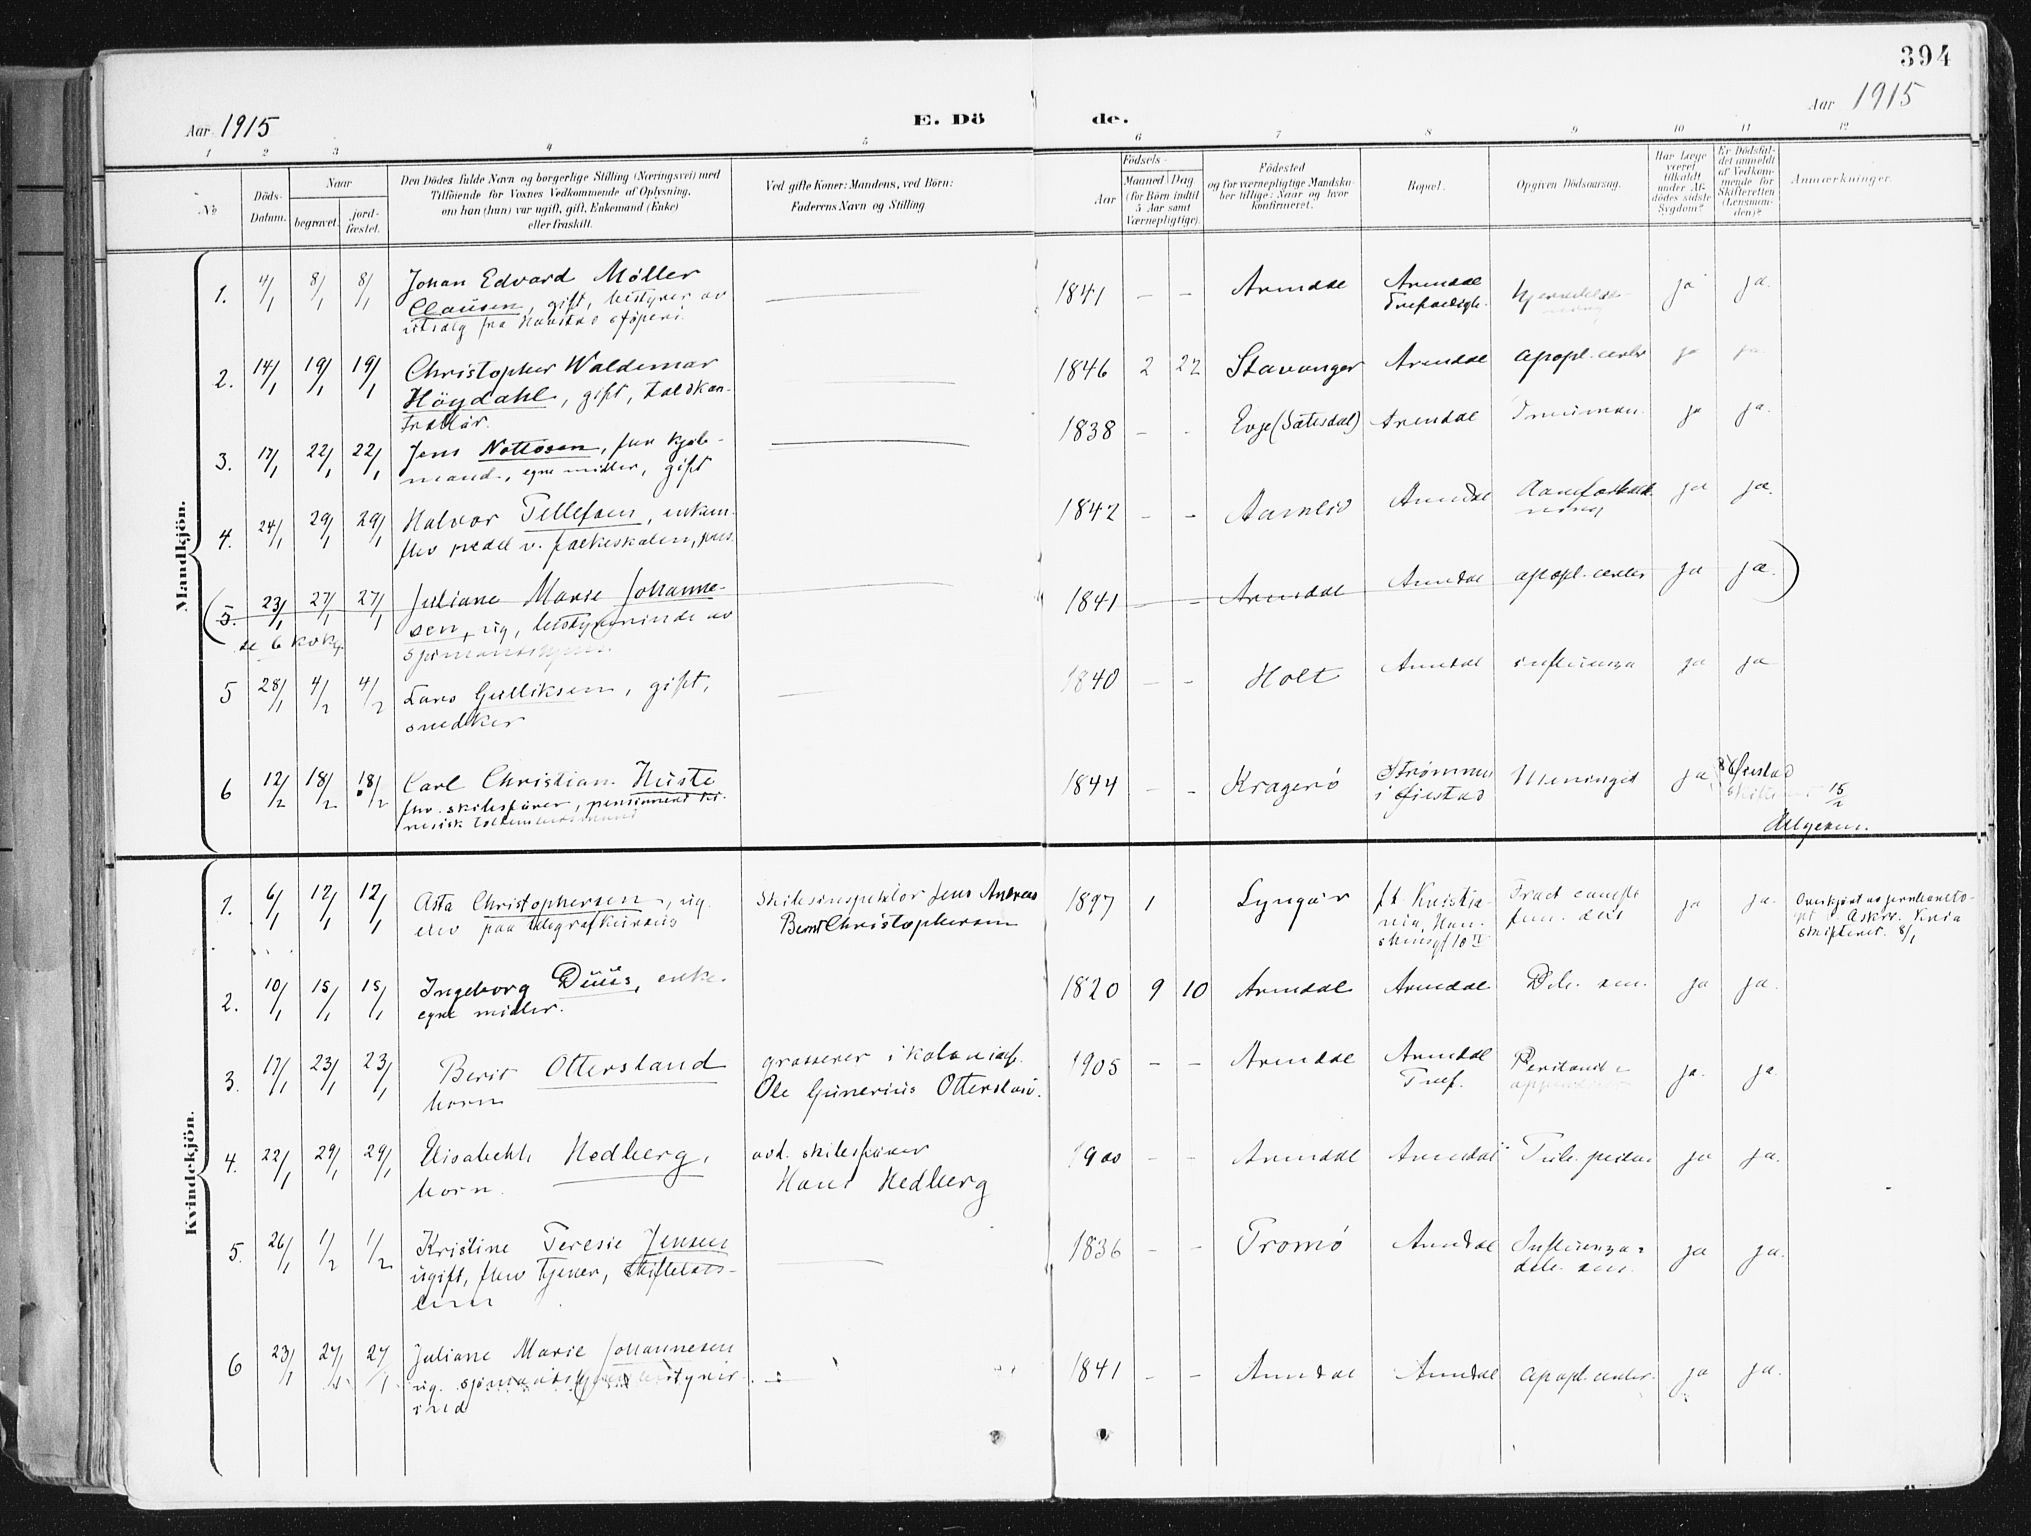 394
Aar 1915
E. Dö
de.
Aar 1915
1 2 3 4 5 6 7 8 9 10 11 12
No
Döds-
Datum.
Naar
begravet.
jord-
fæstet.
Den Dödes fulde Navn og borgerlige Stilling (Næringsvei) med
Tilföiende for Voxnes Vedkommende af Oplysning,
om han (hun) var ugift, gift, Enkemand (Enke)
eller fraskilt.
Ved gifte Koner: Mandens, ved Børn:
Faderens Navn og Stilling
Födsels-
Aar
Maaned
Dag
(for Börn indtil
5 Aar samt
Værnepligtige).
Födested
og for værnepligtige Mandska-
ber tillige: Naar og hvor
konfirmeret.
Bopæl.
Opgiven Dödsaarsag.
Har Læge
været
tilkaldt
under Af-
dödes sidste
Sygdom?
Er Dödsfal-
det anmeldt
af Vedkom-
mende for
Skifteretten
(Lensman-
den)?
Anmærkninger.
Mandkjön.
1. 4/1 8/1 8/1 Johan Edvard Møller
Clausen, gift, bestyrer av
utsalg fra
1841 – – Arendal Arendal ja ja.
2. 14/1 19/1 19/1 Christopher Waldemar
Höydahl, gift, toldkon-
trollör.
1846 2 22 Stavanger Arendal apopl. cerebr ja ja
3. 17/1 22/1 22/1 Jens Nottosen, fhv kjöb-
mand, egne midler, gift
1838 – – Evje (Sætesdal) Arendal ja ja.
4. 24/1 29/1 29/1 Halvor Tellefsen, enkem.
fhv pedel v. folkeskolen,
1842 – – Aamlid Arendal Aareforkalk
ning ja ja.
(5. 23/1 27/1 27/1 Juliane Marie Johanne-
sen, ug, bestyrerinde av
se 6 kvkj.
1841 – – Arendal Arendal apopl. cerebr ja ja.)
5 28/1 4/2 4/2 Lars Gulliksen, gift,
snedker
1840 – – Holt Arendal influenza ja ja
6 12/2 18/2 18/2 Carl Christian Heiste
fhv. skibsfører, pensioneret ki-
nesisk
1844 – – Kragerö Strömmen
i Øiestad Meningit ja Øiestad
15/2
Kvindekjön.
1. 6/1 12/1 12/1 Asta Christophersen, ug.
elev paa telegrafkursus
Skibsinspektör Jens Andreas
Bernt Christophersen
1897 1 Lyngör ja ja.
Askers
skifteret. 8/1
2. 10/1 15/1 15/1 Ingeborg Duus, enke.
egne midler.
1820 9 10 Arendal Arendal Deb. sen. ja ja.
3. 17/1 23/1 23/1 Berit Ottersland
barn
grosserer i
Ole Gunerius Ottersland.
1905 – – Arendal Arendal
Tref. ja. ja.
4. 22/1 29/1 29/1 Elisabeth Hedberg,
barn.
avd. skibsfører
Hans Hedberg
1900 – – Arendal Arendal ja ja.
5. 26/1 1/2 1/2 Kristine Teresie Jensen
ugift, fhv tjener, stiftelses-
lem
1836 – – Tromö Arendal Influenza
deb. sen. ja ja.
6 23/1 27/1 27/1 Juliane Marie Johannesen
ug. bestyrer-
ind
1841 – – Arendal Arendal Apopl. cerebr. ja ja.